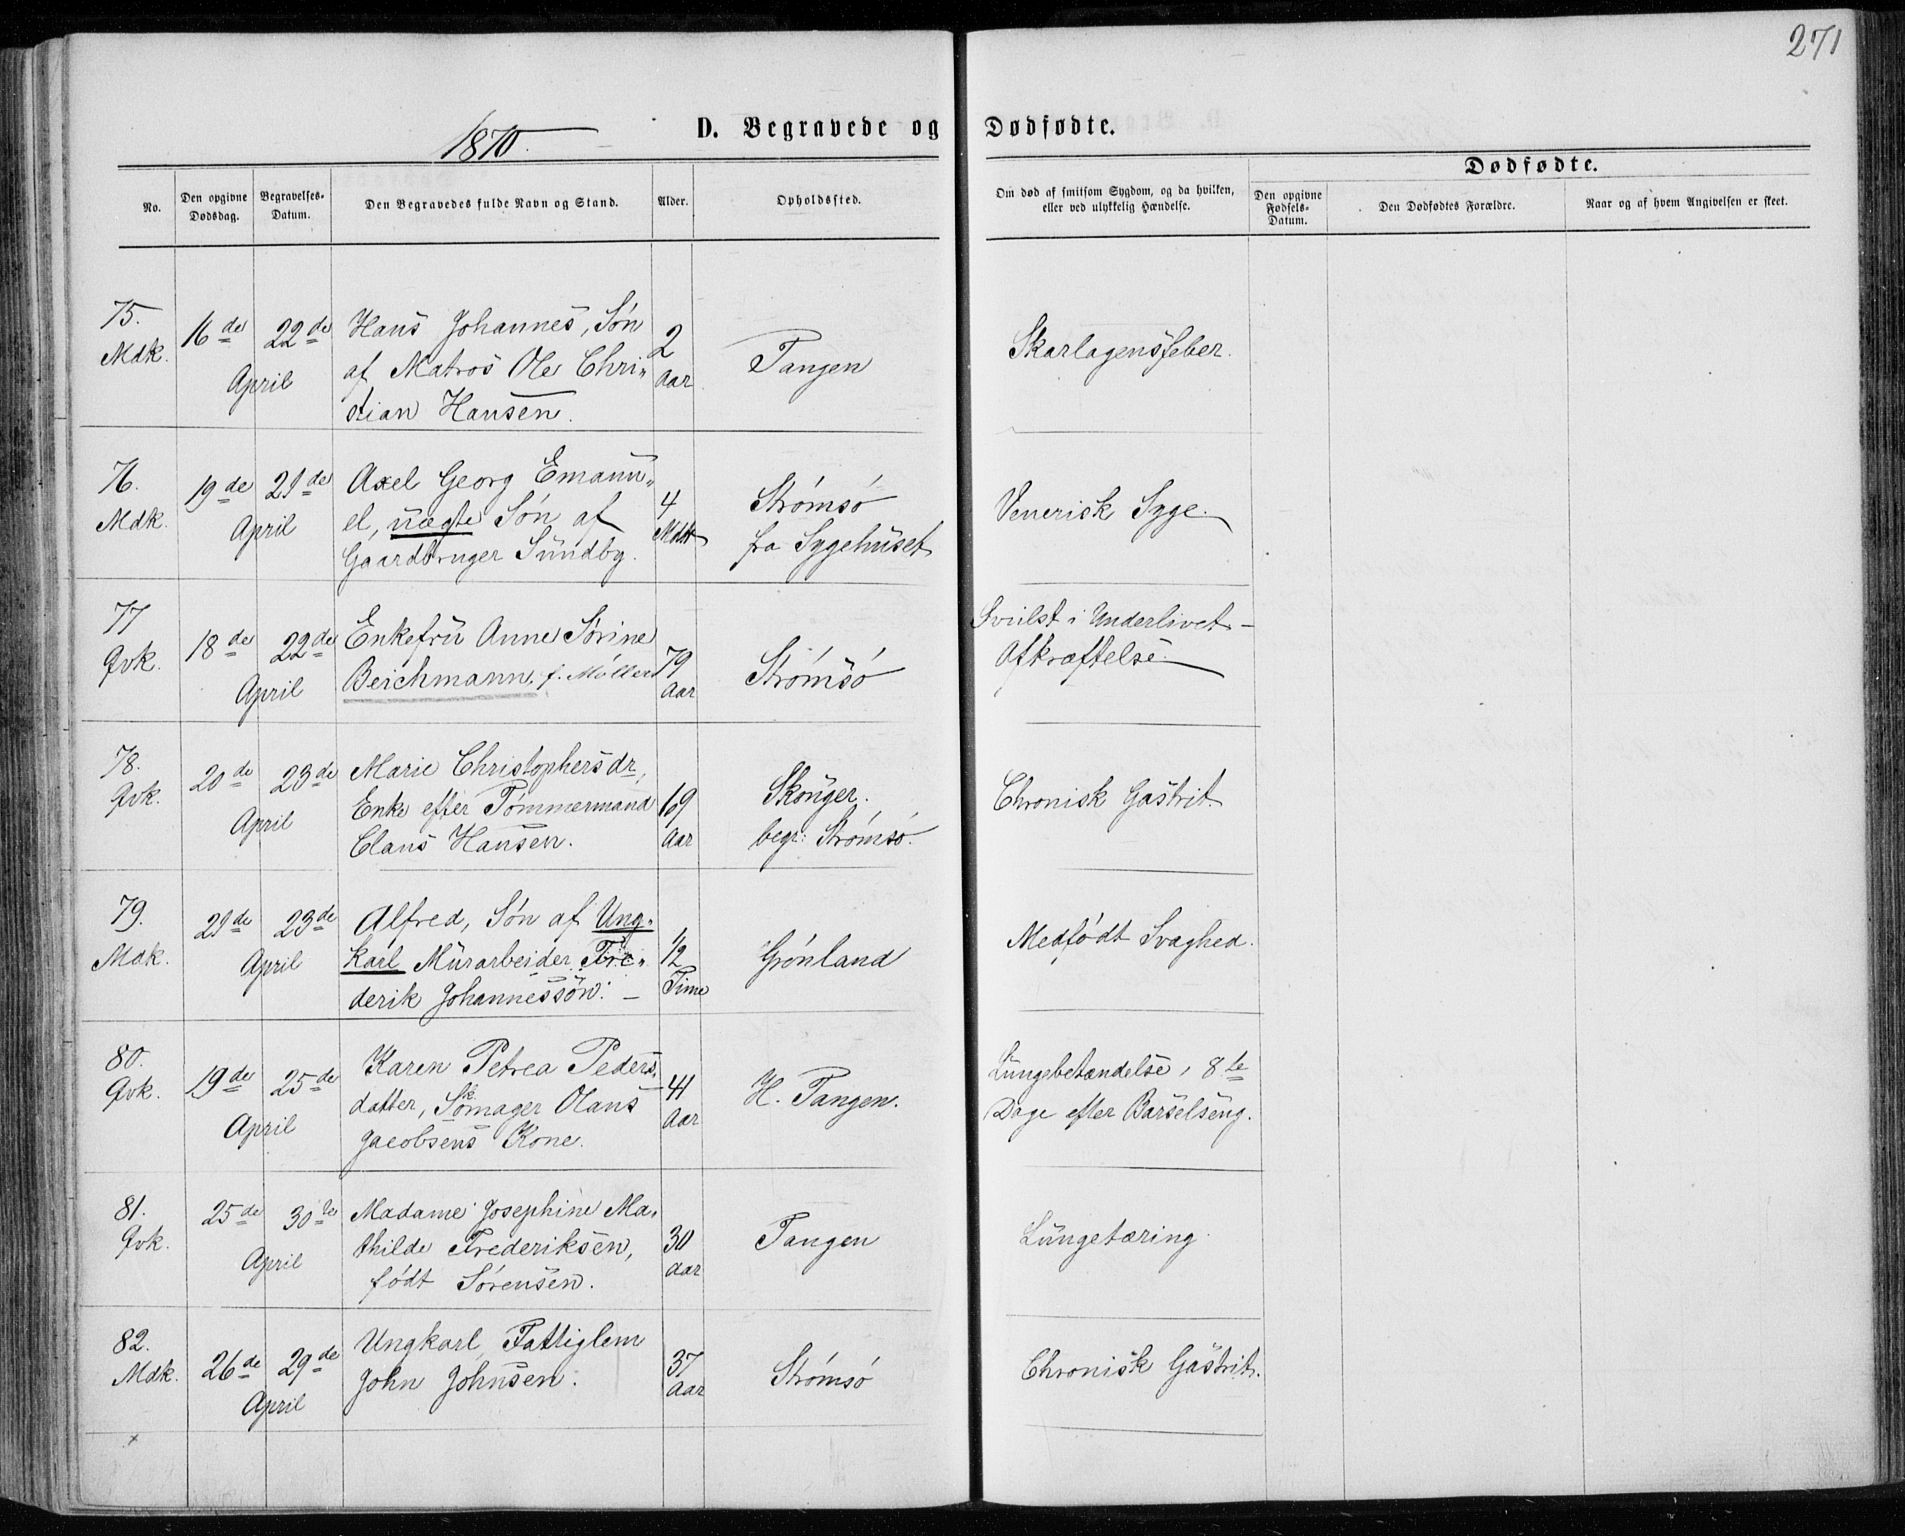 271
1870.
D. Begravede og Dødfødte.
Dødfødte.
No.
Den opgivne Dødsdag.
Begravelses-Datum.
Den Begravedes fulde Navn og Stand.
Alder.
Opholdssted.
Om død af smitsom Sygdom, og da hvilken, eller ved ulykkelig Hændelse.
Den opgivne Fødsels-Datum.
Den Dødfødtes Forældre.
Naar og af hvem Angivelsen er skeet.
75.
Mdk.
16de 22de
April
Hans Johannes, Søn
af Matros Ole Chri„
stian Hansen.
2
Aar
Tangen
Skarlagensfeber.
76.
Mdk.
19de 21de
April
Axel Georg Emanu„
el, uægte Søn af
Gaardbruger Sundby.
4
Mdr
Strømsø
fra Sygehuset
Venerisk Syge.
77
Qvk.
18de 22de
April
Enkefru Anne Sørine
Beichmann, f. Møller
79
Aar
Strømsø
Svulst i Underlivet –
Afkræftelse.
78.
Qvk.
20de 23de
April
Marie Christophersdr,
Enke efter Tømmermand
Claus Hansen.
69
Aar
Skouger.
begr: Strømsø.
Chronisk Gastrit.
79.
Mdk.
21de 23de
April
Alfred, Søn af Ung„
karl Murarbeider Fre„
derik Johannessøn. –
1/2
Time
Grønland
Medfødt Svaghed.
80.
Qvk.
19de 25de
April
Karen Petrea Peders„
datter, Skomager Olaus
Jacobsens Kone.
41
Aar
H. Tangen.
Lungebetændelse, 8te
Dage efter Barselseng.
81.
Qvk.
25de 30te
April
Madame Josephine Ma„
thilde Frederiksen,
født Sørensen.
30
Aar
Tangen
Lungetæring.
82.
Mdk.
26de 29de
April
Ungkarl, Fattiglem
John Johnsen.
37
Aar
Strømsø
Chronisk Gastrit.